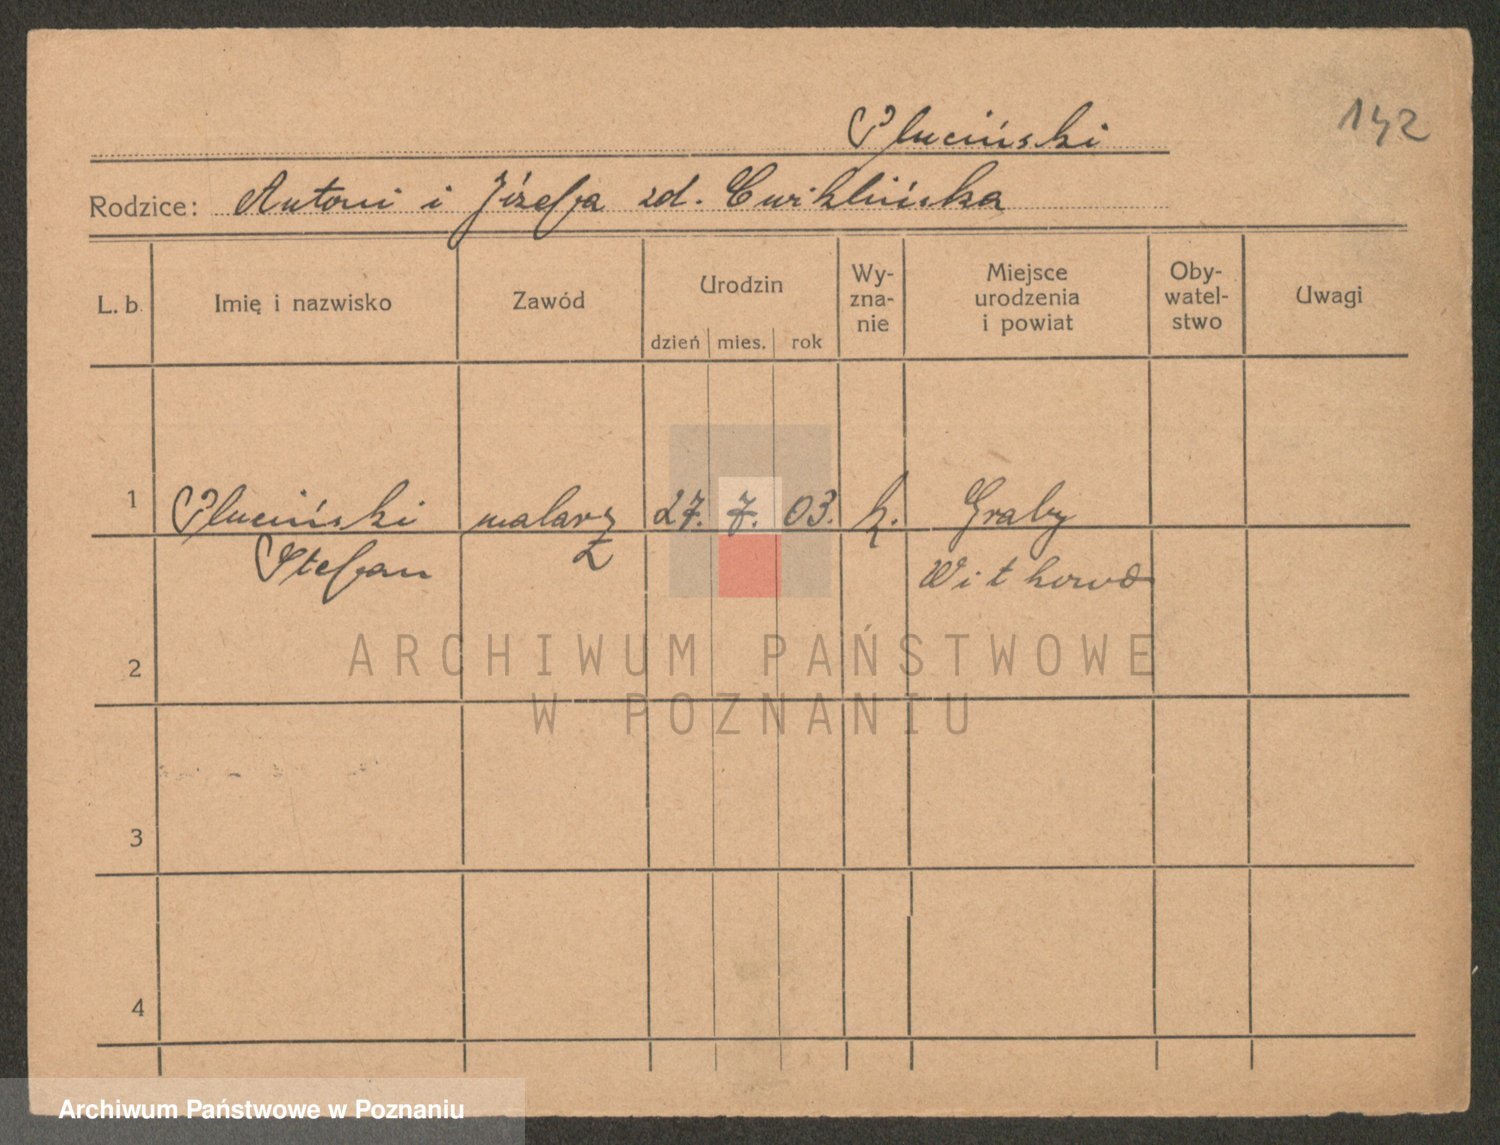 142
Pluciński
Rodzice: Antoni i Józefa zd. Cwiklińska
L. b. Imię i nazwisko Zawód Urodzin dzień mies. rok Wy-zna-nie Miejsce urodzenia i powiat Oby-watel-stwo Uwagi
1 Pluciński malarz 27. 7. 03. k. Graby
Stefan Z Witkowo
2
3
4
ARCHIWUM PAŃSTWOWE
W POZNANIU
Archiwum Państwowe w Poznaniu